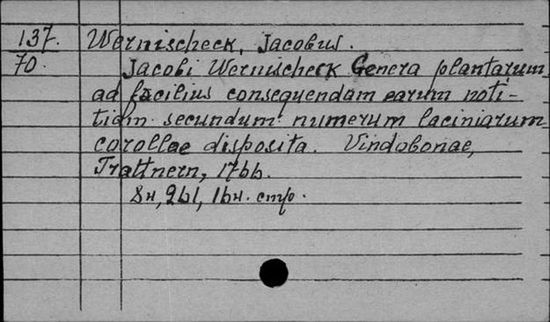 137. Wernischeck, Jacobus.
70. Jacobi Wernischeck Genera plantarum
ad facilius consequendam earum noti-
tiam secundum numerum laciniarum
corollae disposita. Vindobonae,
Trattnern, 1766.
8н, 261, 16н. стр.